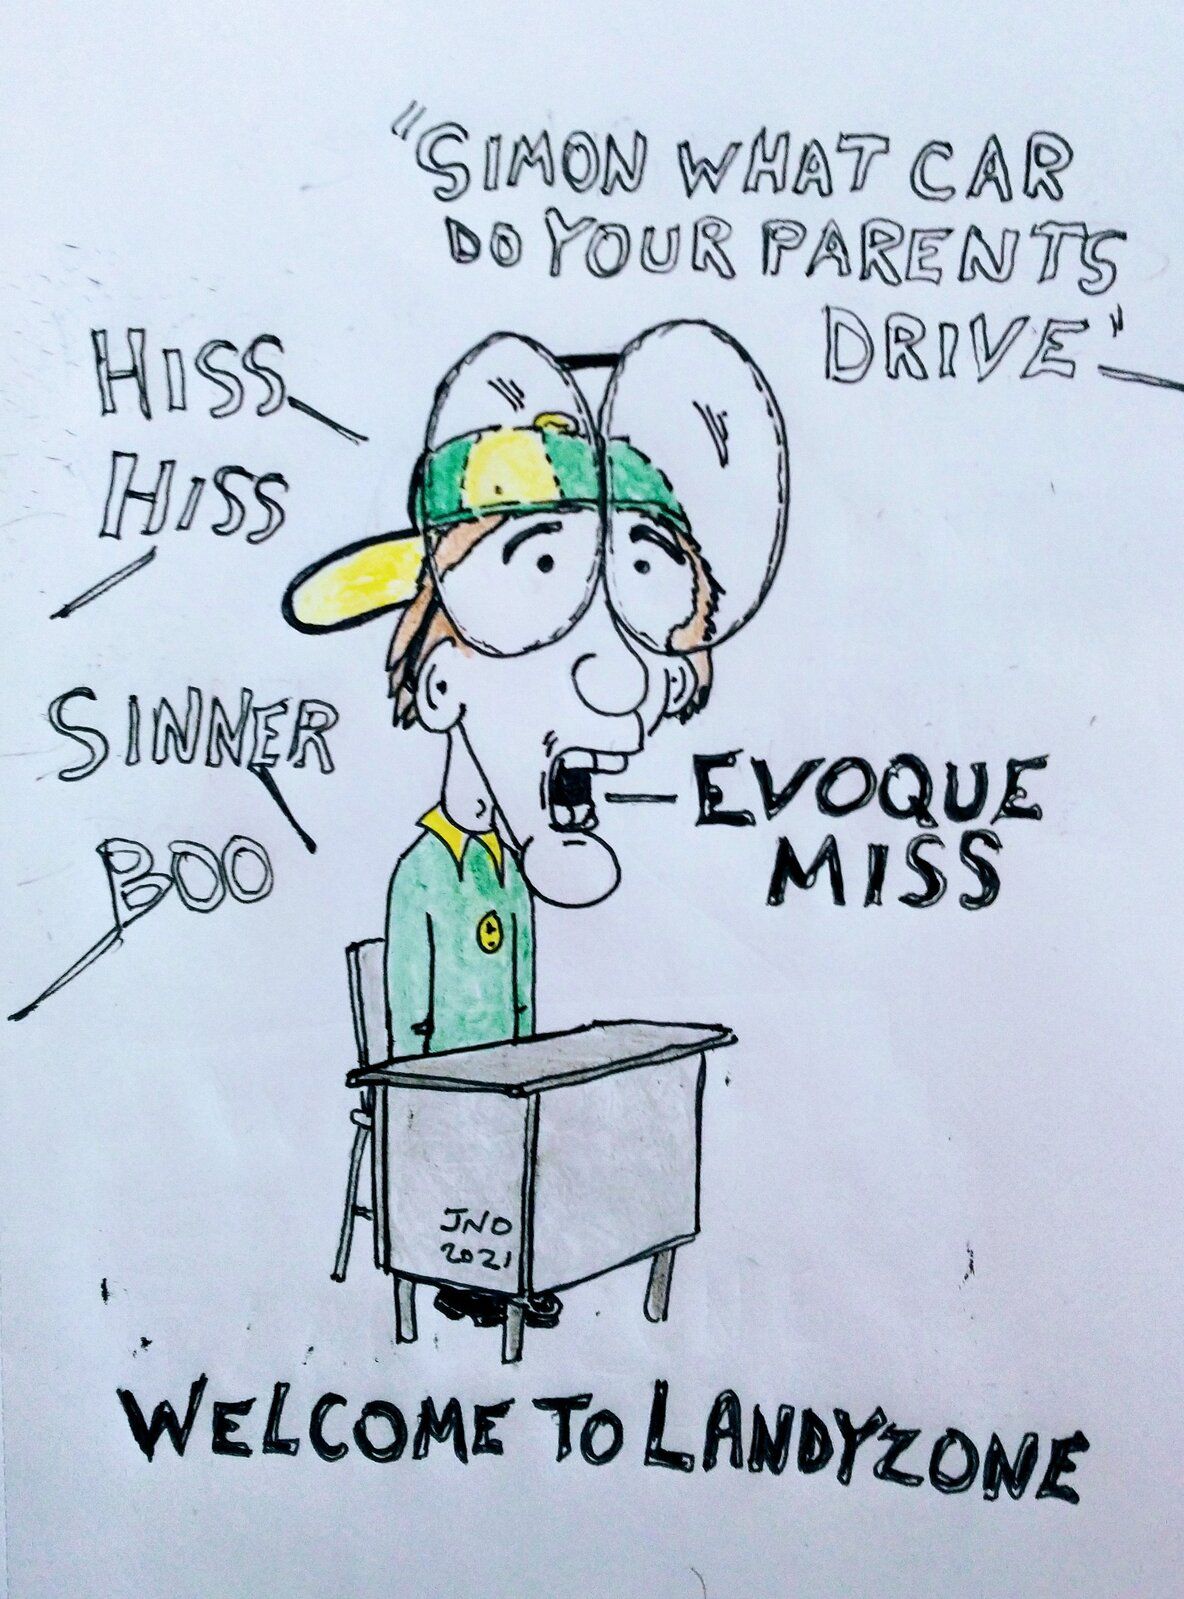 "SIMON WHAT CAR
DO YOUR PARENTS
DRIVE"
HISS
HISS
SINNER
BOO
EVOQUE
MISS
JNO
2021
WELCOME TO LANDYZONE